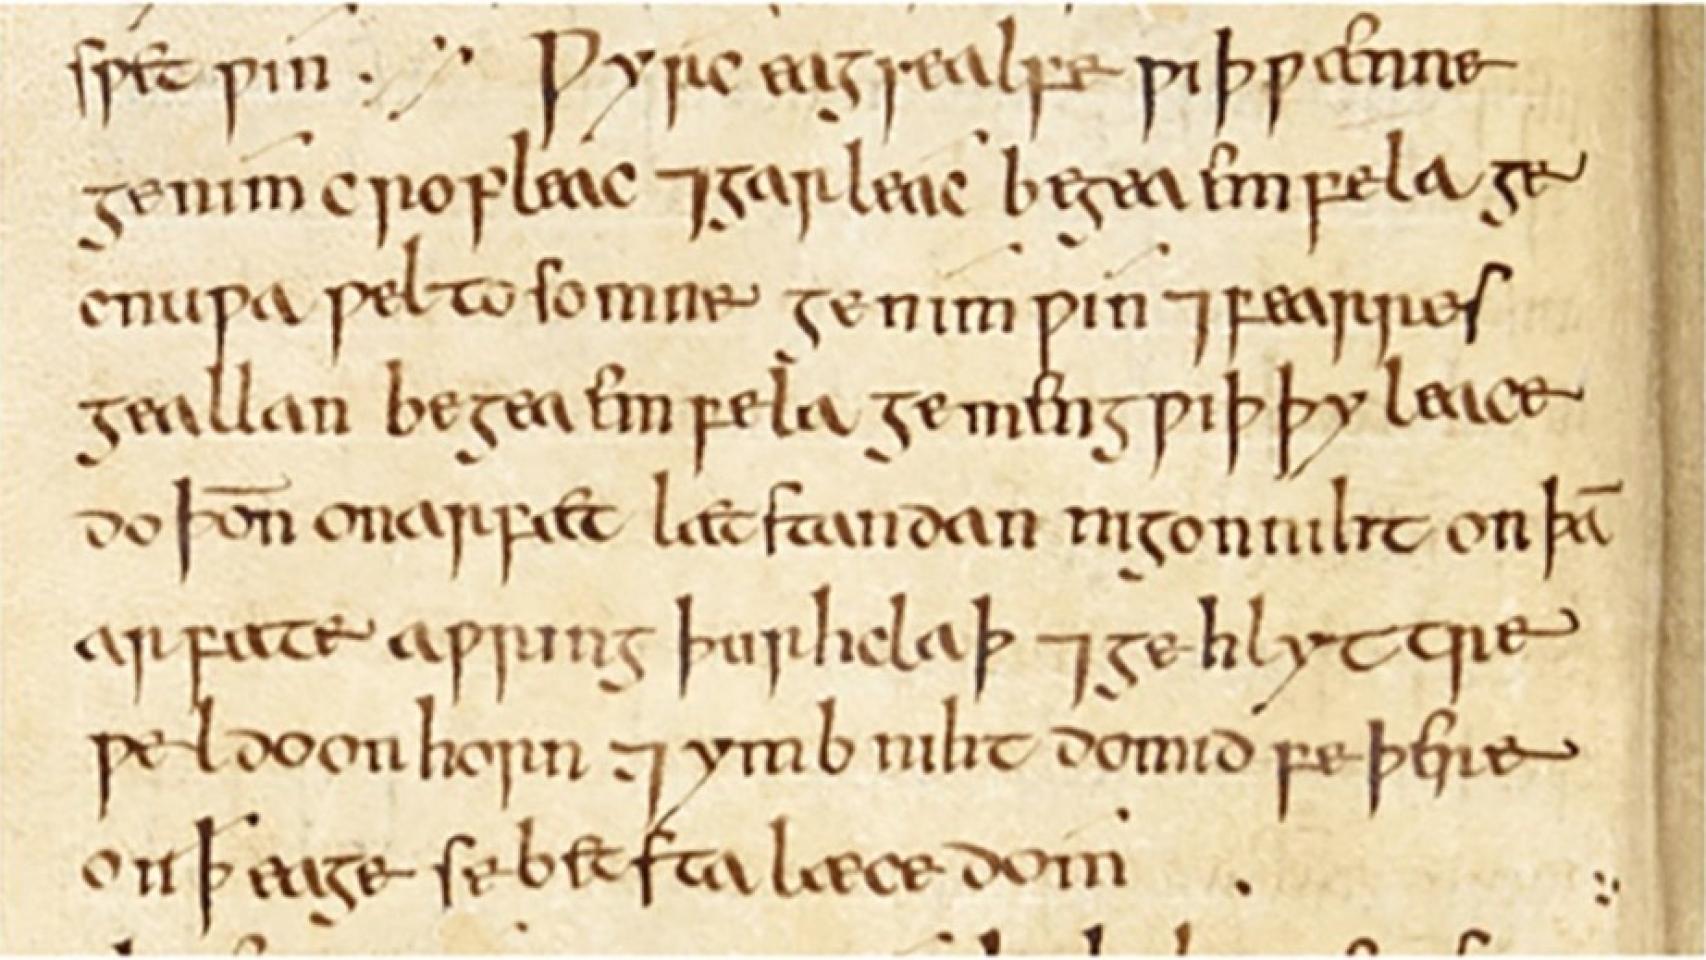 spēt ƿín . Ƿyrc eagsealfe ƿiþ ƿænne
gením cropleac ⁊ garleac begea emfela ge
cnuƿa ƿel tosomne gením ƿín ⁊ fearres
geallan begea emfela gemeng ƿiþ þy leace
do þōn on arfæt læt standan nigon niht on þā
arfate aƿring þurh claþ ⁊ gehlyttre
ƿel do on horn ⁊ ymb niht do mid feþere
on ꝥ eage se betsta læcedóm .